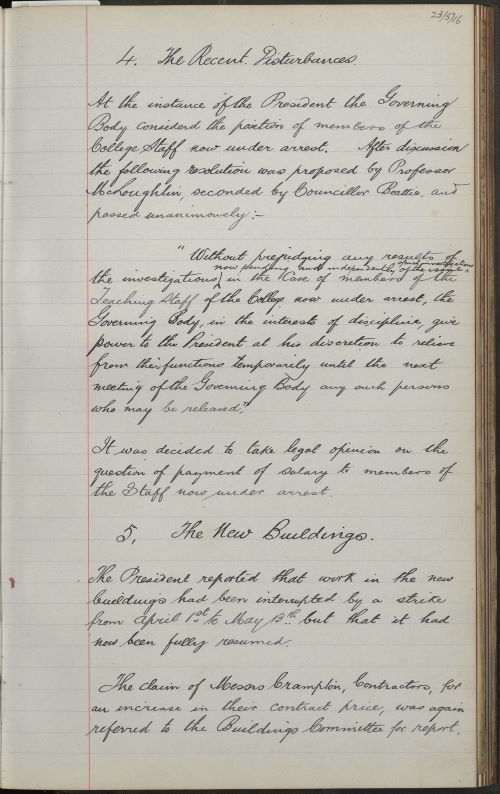 23/5/16
4. The Recent Disturbances.
At the instance of the President the Governing
Body considerd the position of members of the
College Staff now under arrest. After discussion
the following resolution was proposed by Professor
McLoughlin, seconded by Councillor Beattie, and
passed unanimously:-
"Without prejudging any results of
now pending and independently of the issue
the investigations in the case of members of the
Teaching Staff of the College now under arrest, the
Governing Body, in the interests of discipline, give
power to the President at his discretion to relieve
from their functions temporarily until the next
meeting of the Governing Body any such persons
who may be released."
It was decided to take legal opinion on the
question of payment of salary to members of
the Staff now under arrest.
5. The New Buildings.
The President reported that work in the new
buildings had been interrupted by a strike
from April 1st to May but that it had
now been fully resumed.
The claim of Messrs Crampton, Contractors, for
an increase in their contract price, was again
referred to the Buildings Committee for report.